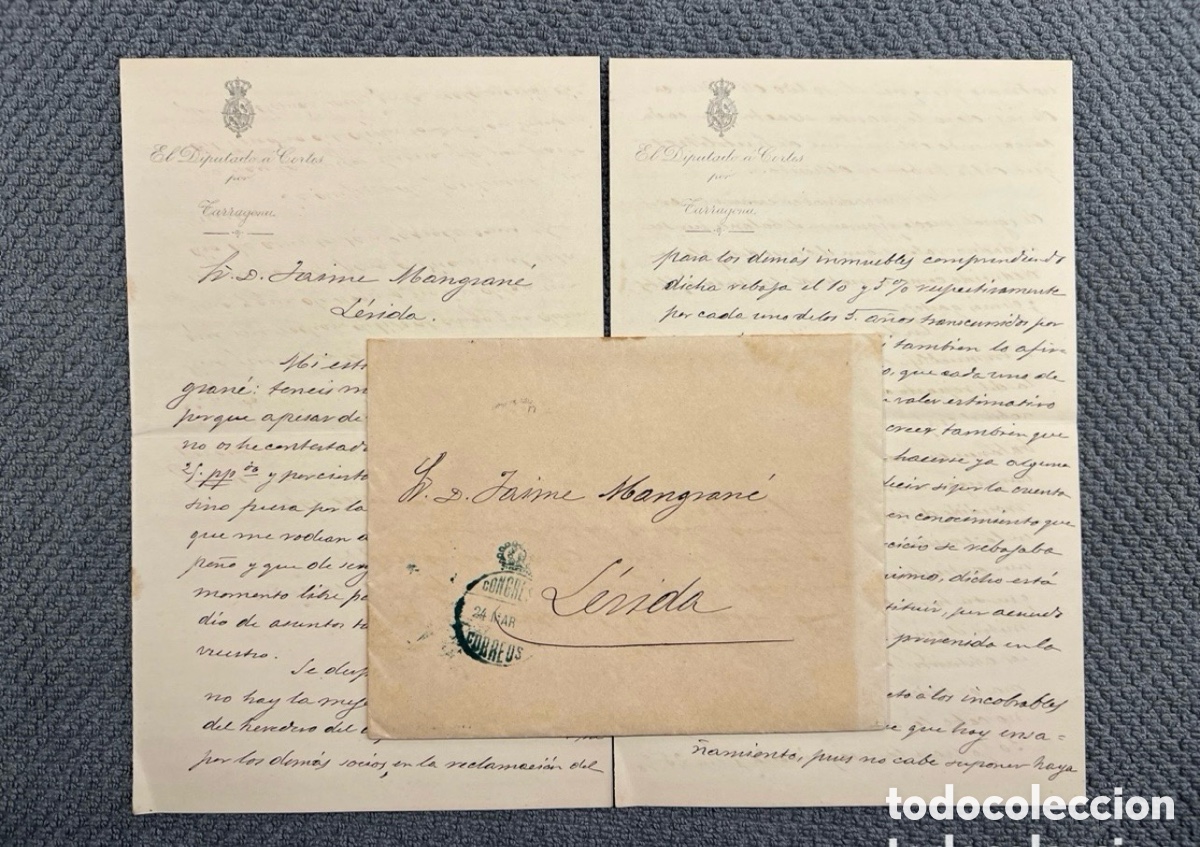 El Diputado a Cortes
por
Tarragona
Sr. D. Jaime Mangrané
Lérida.
Mi est
grané: teneis m
porque apesar de
no os he contestado
25 pp do y por cierto
sino fuera por la
que me rodian
peño y que de
momento libre pa
dio de asuntos ta
vuestro.
Se de
no hay la me
del heredero del
por los demás socios, en la reclamación del
El Diputado a Cortes
por
Tarragona
para los demás inmuebles comprendiendo
dicha rebaja el 10 y 5% respectivamente
por cada uno de los 5 años transcurridos por
i tambien lo afir-
o, que cada uno de
valor estimativo
creer tambien que
hacerse ya alguna
decir si por la cuenta
en conocimiento que
cicio se rebajaba
mismo, dicho está
tituir, por acuerdo
prevenido en la
cto á los incobrables
e que hay ensa-
ñamiento, pues no cabe suponer haya
Sr. D. Jaime Mangrané
Lérida
CONGRES
24 MAR
CORREOS
todocoleccion
todocoleccion